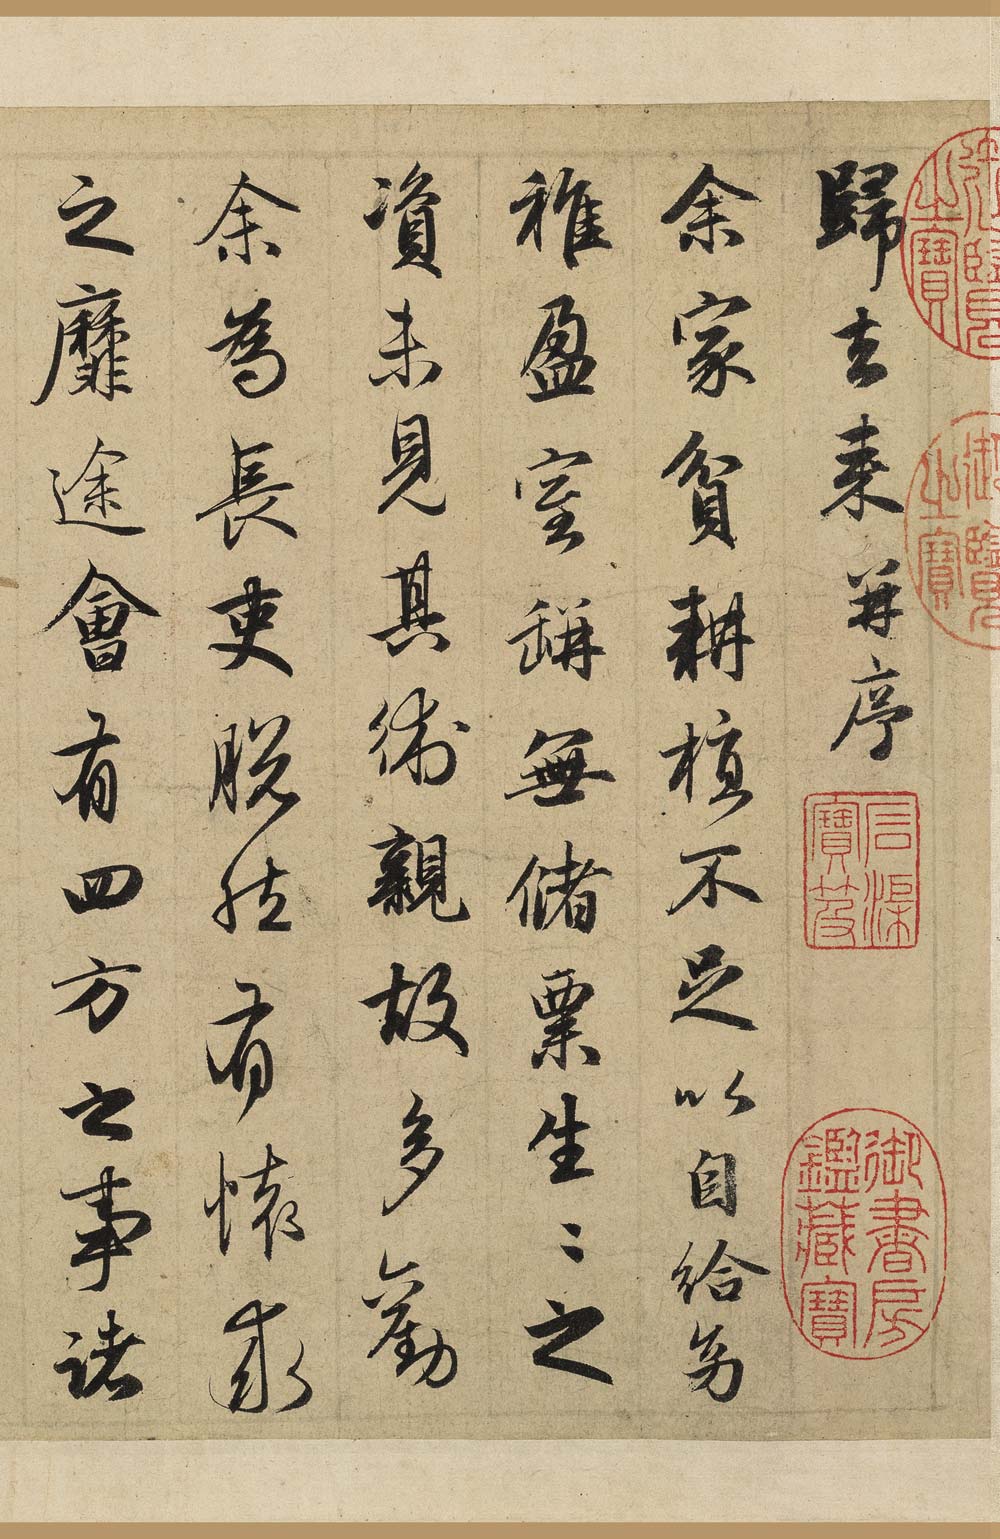 御覽之寶
石渠寶笈
御書房鑑藏寶
歸去來并序
余家貧耕植不足以自給幼
稚盈室缾無儲粟生〻之
資未見其術親故多勸
余為長吏脫然有懷求
之靡途會有四方之事諸